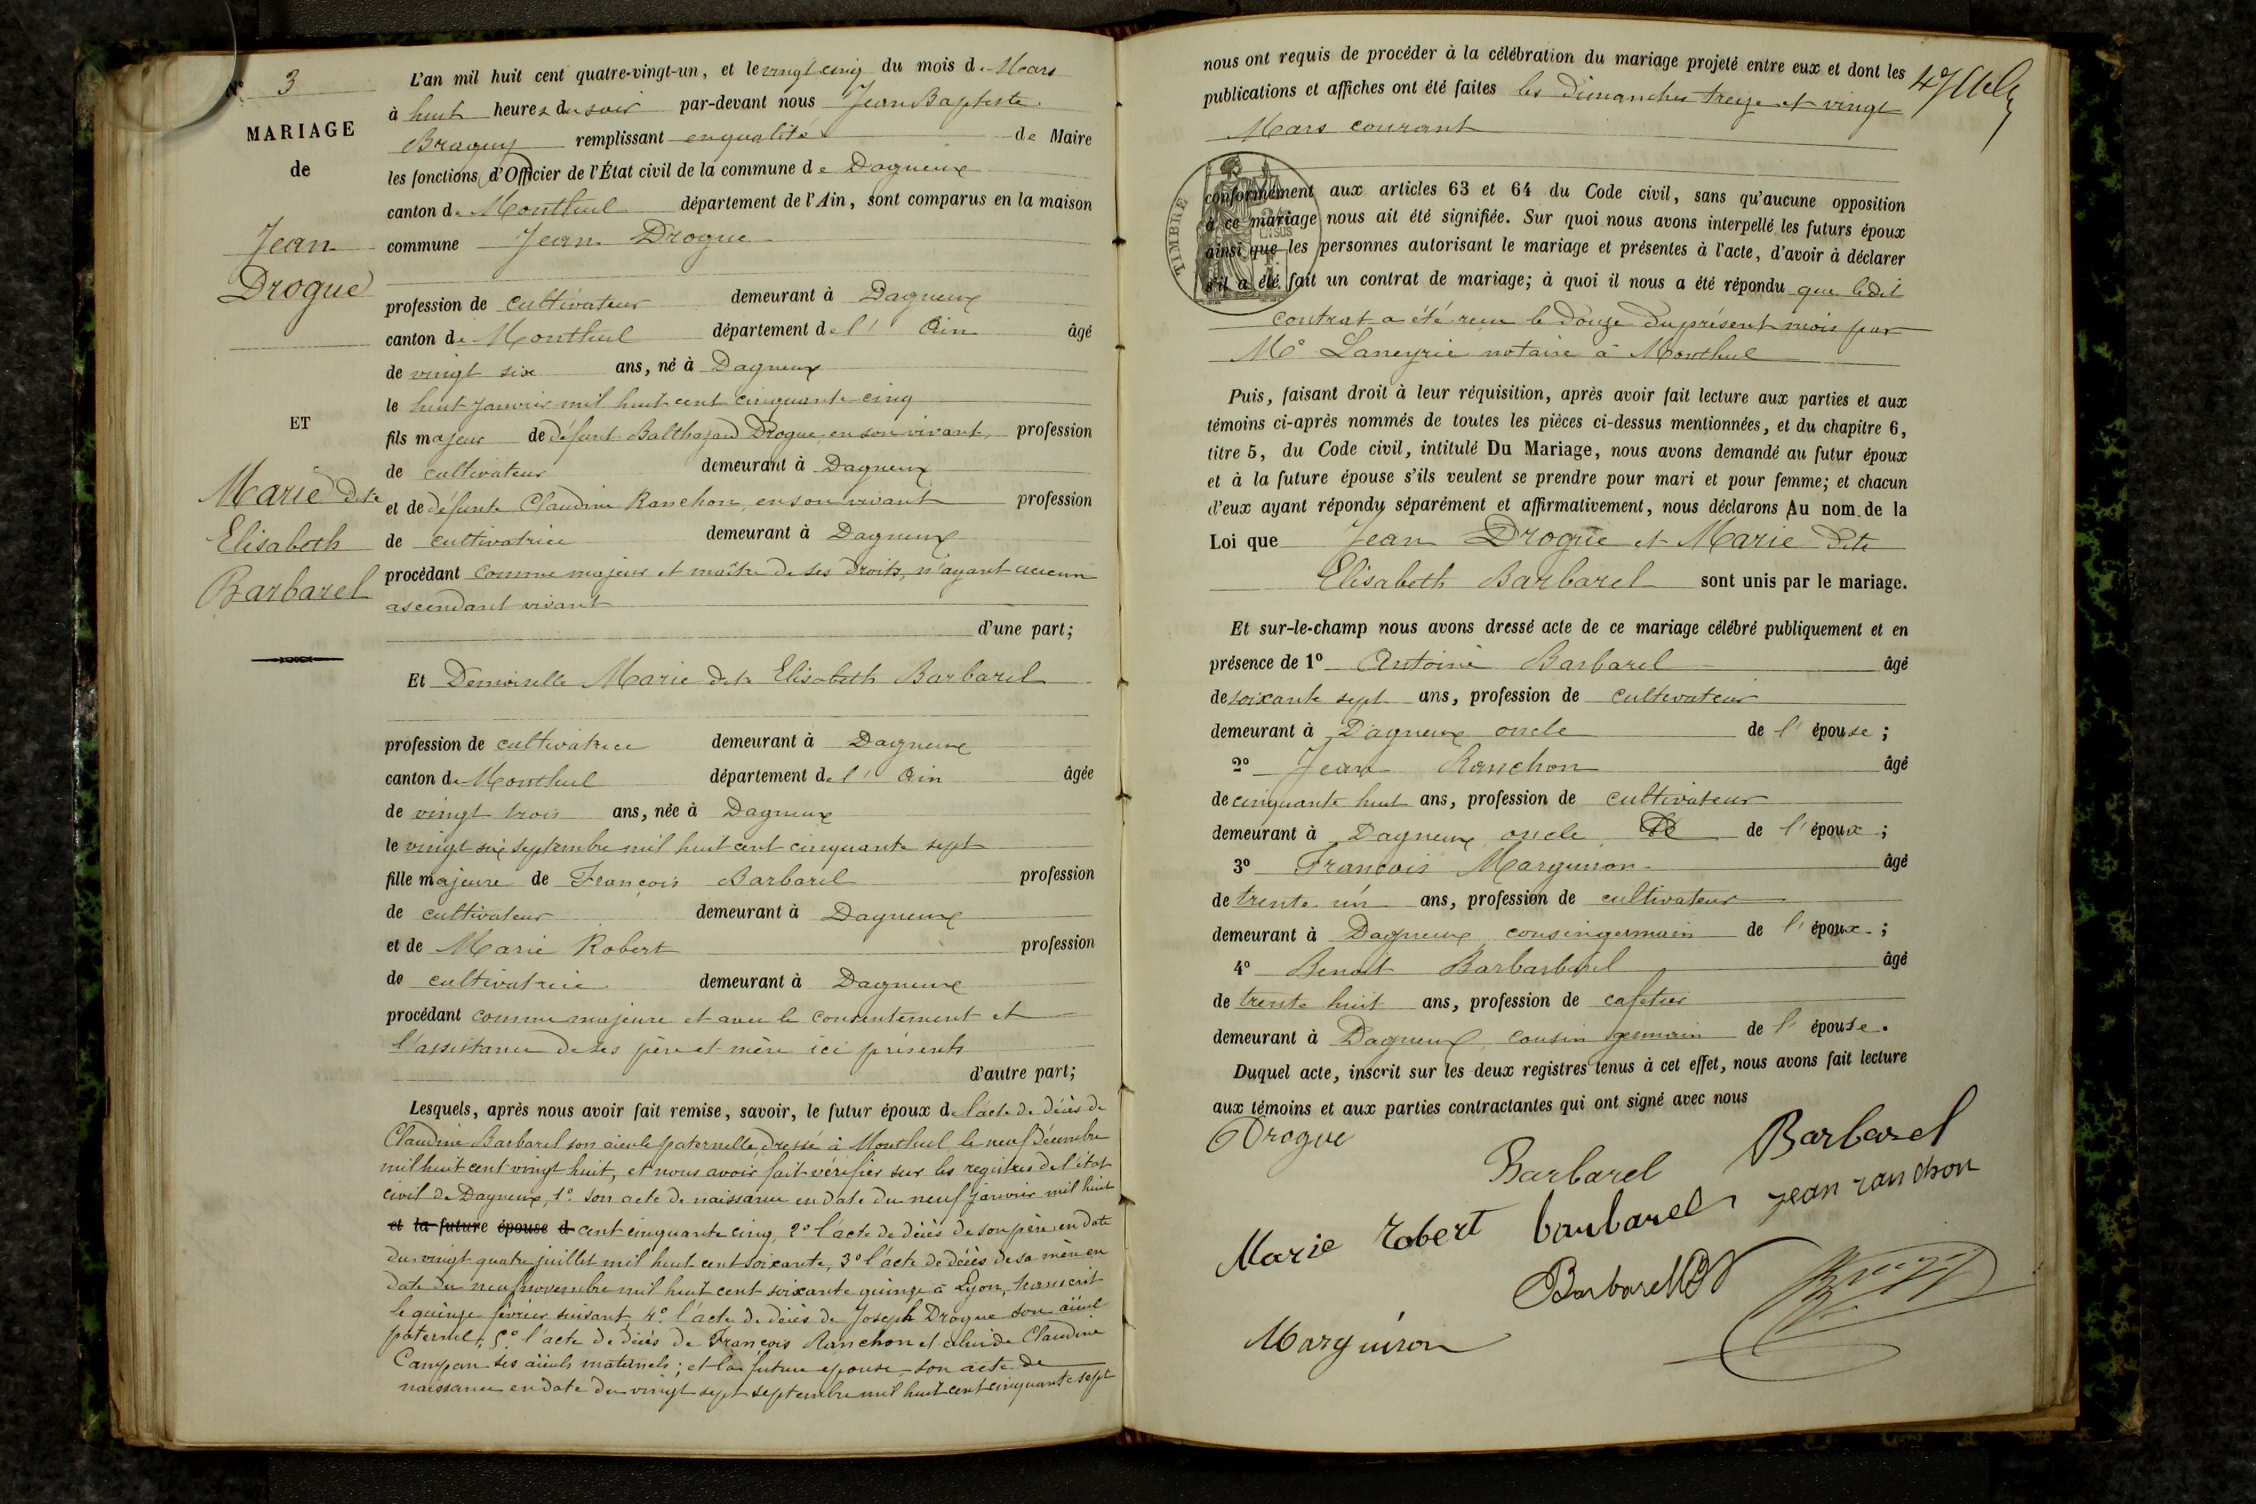 N° 3
MARIAGE
de
Jean
Drogue
ET
Marie dite
Elisabeth
Barbarel
L'an mil huit cent quatre-vingt-un, et le vingt cinq du mois de Mars
à huit heures du soir par-devant nous Jean Baptiste
Braguy remplissant en qualité de Maire
les fonctions d'Officier de l'État civil de la commune de Dagneux
canton de Montluel département de l'Ain, sont comparus en la maison
commune Jean Drogue
profession de cultivateur demeurant à Dagneux
canton de Montluel département de l' Ain âgé
de vingt six ans, né à Dagneux
le huit janvier mil huit cent cinquante cinq
fils majeur de défunt Balthazard Drogue, en son vivant, profession
de cultivateur demeurant à Dagneux
et de défunte Claudine Ranchon, en son vivant profession
de cultivatrice demeurant à Dagneux
procédant comme majeur et maître de ses droits, n'ayant aucun
ascendant vivant
d'une part;
Et Demoiselle Marie dite Elisabeth Barbarel
profession de cultivatrice demeurant à Dagneux
canton de Montluel département de l' Ain âgée
de vingt trois ans, née à Dagneux
le vingt six septembre mil huit cent cinquante sept
fille majeure de François Barbarel profession
de cultivateur demeurant à Dagneux
et de Marie Robert profession
de cultivatrice demeurant à Dagneux
procédant comme majeure et avec le consentement et
l'assistance de ses père et mère ici présents
d'autre part;
Lesquels, après nous avoir fait remise, savoir, le futur époux de l'acte de décès de
Claudine Barbarel son aïeule paternelle, dressé à Montluel le neuf Décembre
mil huit cent vingt huit, et nous avoir fait vérifier sur les registres de l'état
civil de Dagneux, 1° son acte de naissance en date du neuf janvier mil huit
et la future épouse d cent cinquante cinq, 2° l'acte de décès de son père en date
du vingt quatre juillet mil huit cent soixante, 3° l'acte de décès de sa mère en
date du neuf novembre mil huit cent soixante quinze à Lyon, transcrit
le quinze février suivant, 4° l'acte de décès de Joseph Drogue son aïeul
paternel, 5° l'acte de décès de François Ranchon et celui de Claudine
Campan ses aïeuls maternels; et la future épouse son acte de
naissance en date du vingt sept septembre mil huit cent cinquante sept
nous ont requis de procéder à la célébration du mariage projeté entre eux et dont les
publications et affiches ont été faites les dimanches treize et vingt
Mars courant
TIMBRE
conformément aux articles 63 et 64 du Code civil, sans qu'aucune opposition
à ce mariage nous ait été signifiée. Sur quoi nous avons interpellé les futurs époux
ainsi que les personnes autorisant le mariage et présentes à l'acte, d'avoir à déclarer
s'il a été fait un contrat de mariage; à quoi il nous a été répondu que ledit
contrat a été reçu le douze du présent mois par
Me Laneyrie notaire à Montluel
Puis, faisant droit à leur réquisition, après avoir fait lecture aux parties et aux
témoins ci-après nommés de toutes les pièces ci-dessus mentionnées, et du chapitre 6,
titre 5, du Code civil, intitulé Du Mariage, nous avons demandé au futur époux
et à la future épouse s'ils veulent se prendre pour mari et pour femme; et chacun
d'eux ayant répondu séparément et affirmativement, nous déclarons Au nom de la
Loi que Jean Drogue et Marie dite
Elisabeth Barbarel sont unis par le mariage.
Et sur-le-champ nous avons dressé acte de ce mariage célébré publiquement et en
présence de 1° Antoine Barbarel âgé
de soixante sept ans, profession de cultivateur
demeurant à Dagneux oncle de l' épouse;
2° Jean Ranchon âgé
de cinquante huit ans, profession de cultivateur
demeurant à Dagneux oncle de l' époux;
3° François Marguiron âgé
de trente un ans, profession de cultivateur
demeurant à Dagneux cousin germain de l' époux;
4° Benoit Barbarbarel âgé
de trente huit ans, profession de cafetier
demeurant à Dagneux cousin germain de l' épouse.
Duquel acte, inscrit sur les deux registres tenus à cet effet, nous avons fait lecture
aux témoins et aux parties contractantes qui ont signé avec nous
Drogue
Barbarel Barbarel
Marie Robert barbarel jean ranchon
Barbarel
Marguiron